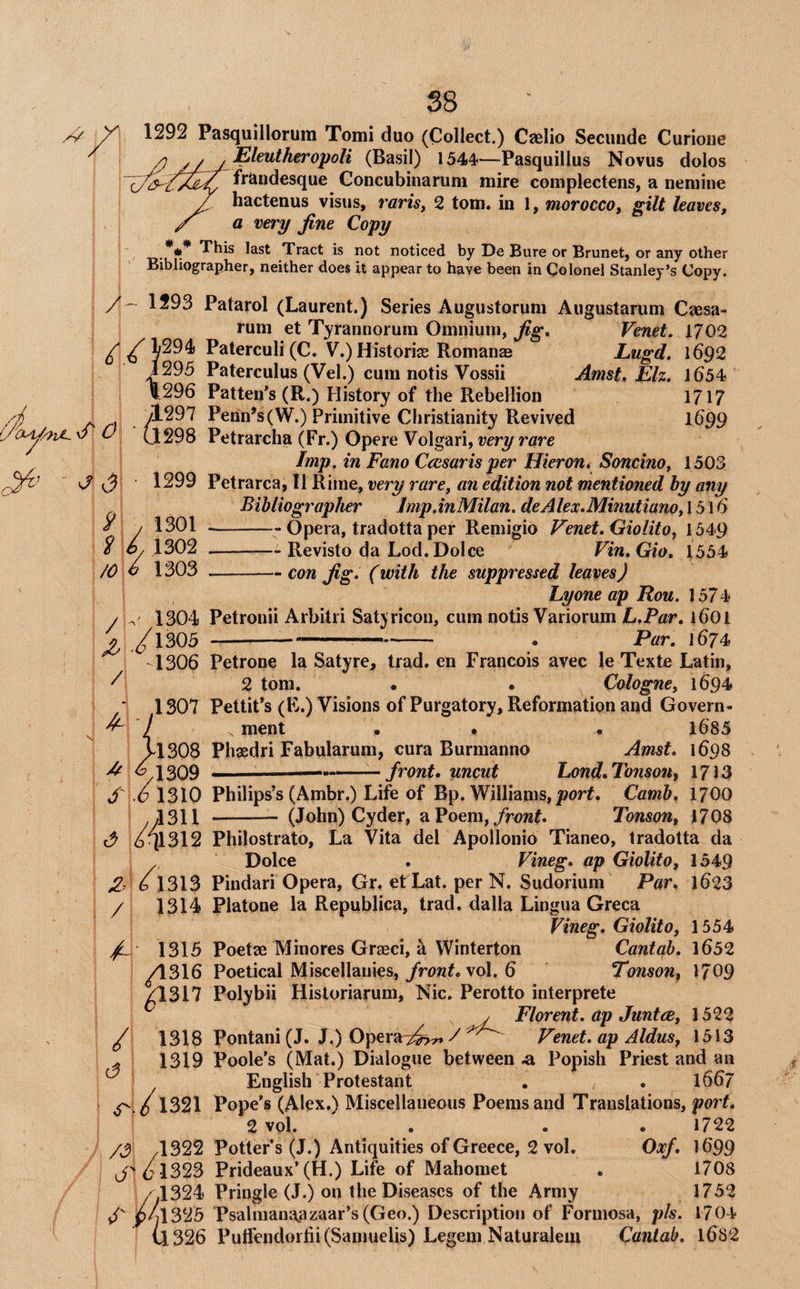 38
1292 Pasquillorum Tomi duo (Collect.) Cælio Secunde Curione
Eleutheropoli (Basil) 1544—Pasquillus Novus dolos
frandesque Concubinarum mire complectens, a nemine
hactenus visus, raris, 2 tom. in 1, morocco, gilt leaves,
a very fine Copy
*** This last Tract is not noticed by De Bure or Brunet, or any other
Bibliographer, neither does it appear to have been in Colonel Stanley's Copy.
1293 Patarol (Laurent.) Series Augustorum Augustarum Cæsa-
rum et Tyrannorum Omnium, fig. Venet. 1702
1294 Paterculi (C. V.) Historiæ Romanæ Lugd. 1692
1295 Paterculus (Vel.) cum notis Vossii Amst. Elz. 1654
1296 Patten's (R.) History of the Rebellion 1717
1297 Penn's (W.) Primitive Christianity Revived 1699
1298 Petrarcha (Fr.) Opere Volgari, very rare
Imp. in Fano Cæsaris per Hieron. Soncino, 1503
1299 Petrarca, Il Rime, very rare, an edition not mentioned by any
Bibliographer Imp.inMilan. deAlex.Minutiano, 1516
1301 ——— Opera, tradotta per Remigio Venet. Giolito, 1549
1302 ——— Revisto da Lod. Dolce Vin. Gio. 1554
1303 ——— con fig. (with the suppressed leaves)
Lyone ap Rou. 1574
1304 Petronii Arbitri Satyricon, cum notis Variorum L.Par. 1601
1305 ——— . Par. 1674
1306 Petrone la Satyre, trad. en Francois avec le Texte Latin,
2 tom. . . Cologne, 1694
1307 Pettit's (E.) Visions of Purgatory, Reformation and Govern-
ment . . . 1685
1308 Phædri Fabularum, cura Burmanno Amst. 1698
1309 ——— front. uncut Lond. Tonson, 1713
1310 Philips's (Ambr.) Life of Bp. Williams, port. Camb. 1700
1311 ——— (John) Cyder, a Poem, front. Tonson, 1708
1312 Philostrato, La Vita del Apollonio Tianeo, tradotta da
Dolce . Vineg. ap Giolito, 1549
1313 Pindari Opera, Gr. et Lat. per N. Sudorium Par. 1623
1314 Platone la Republica, trad. dalla Lingua Greca
Vineg. Giolito, 1554
1315 Poetæ Minores Græci, à Winterton Cantab. 1652
1316 Poetical Miscellanies, front. vol. 6 Tonson, 1709
1317 Polybii Historiarum, Nic. Perotto interprete
Florent. ap Juntæ, 1522
1318 Pontani (J. J.) Opera Venet. ap Aldus, 1513
1319 Poole's (Mat.) Dialogue between a Popish Priest and an
English Protestant . . 1667
1321 Pope's (Alex.) Miscellaneous Poems and Translations, port.
2 vol. . . . 1722
1322 Potter's (J.) Antiquities of Greece, 2 vol. Oxf. 1699
1323 Prideaux' (H.) Life of Mahomet . 1708
1324 Pringle (J.) on the Diseases of the Army 1752
1325 Psalmanaazaar's (Geo.) Description of Formosa, pls. 1704
1326 Puffendorfii (Samuelis) Legem Naturalem Cantab. 1682